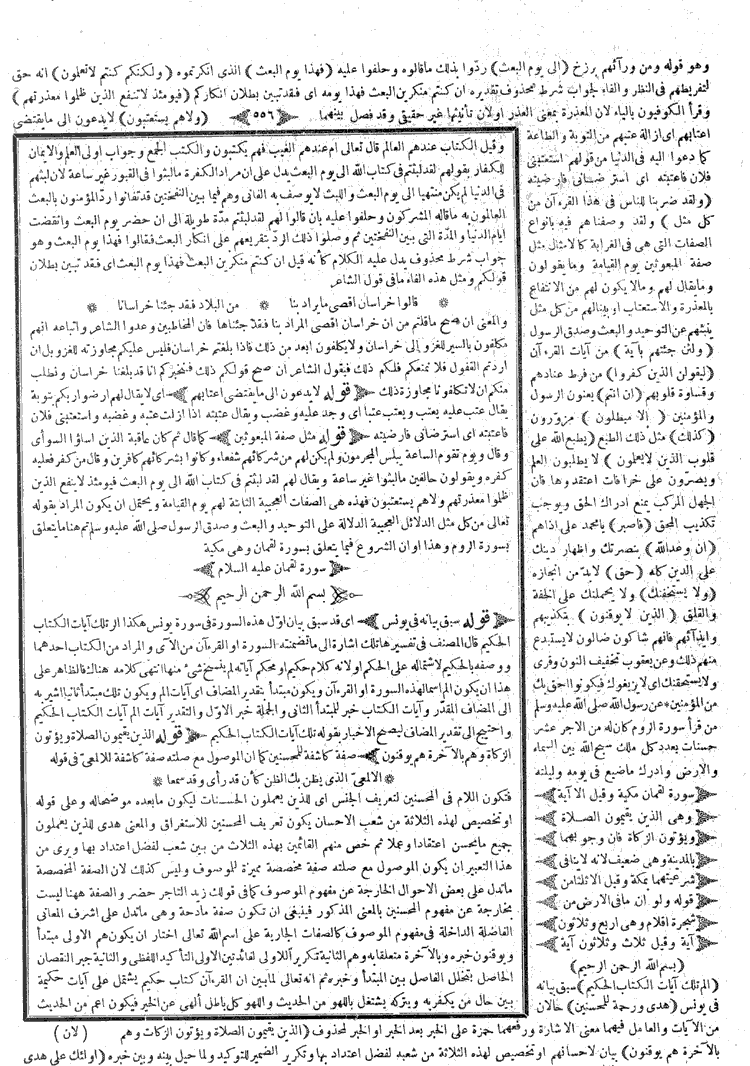 وهو قوله ومن ورآئهم برزخ (الى يوم البعث) ردّوا بذلك ماقالوه وحلفوا عليه (فهذا يوم البعث) الذى انكرتموه (ولكنكم كنتم لاتعلمون) انه حق
لتفريطهم فى النظر والفاء لجواب شرط محذوف تقديره ان كنتم منكرين البعث فهذا يومه اى فقد تبين بطلان انكاركم (فيومئذ لاتنفع الذين ظلموا معذرتهم)
وقرأ الكوفيون بالياء لان المعذرة بمعنى العذر اولان تأنيثها غير حقيقى وقد فصل بينهما ﴿٥٥٦﴾ (ولاهم يستعتبون) لايدعون الى مايقتضى
اعتابهم اى ازالة عتبهم من التوبة والطاعة
كما دعوا اليه فى الدنيا من قولهم استعتبنى
فلان فاعتبته اى استرضانى فارضيته
(ولقد ضربنا للناس فى هذا القرءآن من
كل مثل) ولقد وصفناهم فيه بانواع
الصفات التى هى فى الغرابة كالامثال مثل
صفة المبعوثين يوم القيامة ومايقولون
ومايقال لهم ومالايكون لهم من الانتفاع
بالمعذرة والاستعتاب اوبينالهم من كل مثل
ينبئهم عن التوحيد والبعث وصدق الرسول
(ولئن جئتهم بآية) من آيات القرءآن
(ليقولن الذين كفروا) من فرط عنادهم
وقساوة قلوبهم (ان انتم) يعنون الرسول
والمؤمنين (الا مبطلون) مزوّرون
(كذلك) مثل ذلك الطبع (يطبع الله على
قلوب الذين لايعلمون) لايطلبون العلم
ويصرّون على خرافات اعتقدوها فان
الجهل المركب يمنع ادراك الحق ويوجب
تكذيب المحق (فاصبر) يامحمد على اذاهم
(ان وعدالله) بنصرتك واظهار دينك
على الدين كله (حق) لابدّ من انجازه
(ولا يستخفنك) ولا يحملنك على الخفة
والقلق (الذين لايوقنون) بتكذيبهم
وايذآئهم فانهم شاكون ضالون لايستبدع
منهم ذلك وعن يعقوب تخفيف النون وقرئ
ولايستحقنك اى لايزيغوك فيكونوا احق بك
من المؤمنين * عن رسول الله صلى الله عليه وسلم
من قرأ سورة الروم كان له من الاجر عشر
حسنات بعدد كل ملك سبح الله بين السماء
والارض وادرك ماضيع فى يومه وليلته
﴿سورة لقمان مكية وقيل الا آية﴾
﴿وهى الذين يقيمون الصلاة﴾
﴿ويؤتون الزكاة فان وجوبهما﴾
﴿بالمدينة وهى ضعيف لانه لاينافى﴾
﴿شرعيتهما بمكة وقيل الاثلاثا من﴾
﴿قوله ولو ان مافى الارض من﴾
﴿شجرة اقلام وهى اربع وثلاثون﴾
﴿آية وقيل ثلاث وثلاثون آية﴾
(بسم الله الرحمن الرحيم)
(الم تلك آيات الكتاب الحكيم) سبق بيانه
فى يونس (هدى ورحمة للمحسنين) حالان
من الآيات والعامل فيهما معنى الاشارة ورفعهما حمزة على الخبر بعد الخبر او الخبر لمحذوف (الذين يقيمون الصلاة ويؤتون الزكات وهم
بالآخرة هم يوقنون) بيان لاحسانهم اوتخصيص لهذه الثلاثة من شعبه لفضل اعتداد بها وتكرير الضمير للتوكيد ولما حيل بينه وبين خبره (اوائك على هدى
(لان)
وقيل الكتاب عندهم العالم قال تعالى ام عندهم الغيب فهم يكتبون والكتب الجمع وجواب اولى العلم والايمان
للكفار بقولهم لقد لبثتم فى كتاب الله الى يوم البعث يدل على ان مراد الكفرة مالبثوا فى القبور غير ساعة لان لبثهم
فى الدنيا لم يكن منتهيا الى يوم البعث واللبث لايوصف به الفانى وهم فيما بين النفختين قد تفانوا ردّ المؤمنون بالبعث
العالمون به ماقاله المشركون وحلفوا عليه بان قالوا لهم لقد لبثتم مدّة طويلة الى ان حضر يوم البعث وانقضت
ايام الدنيا والمدّة التى بين النفختين ثم وصلوا ذلك الردّ بتقريعهم على انكار البعث فقالوا فهذا يوم البعث وهو
جواب شرط محذوف يدل عليه الكلام كأنه قيل ان كنتم منكرين البعث فهذا يوم البعث اى فقد تبين بطلان
قولكم ومثل هذه الفاء مافى قول الشاعر
* قالوا خراسان اقصى مايراد بنا * من البلاد فقد جئنا خراسانا *
والمعنى ان صح ماقلتم من ان خراسان اقصى المراد بنا فقد جئناها فان المخاطبين وعدوا الشاعر واتباعه انهم
مكلفون بالسير للغزو الى خراسان ولايكلفون ابعد من ذلك فاذا بلغتم خراسان فليس عليكم مجاوزته للغزو بل ان
اردتم القفول فلا نمنعكم فلكم ذلك فيقول الشاعر ان صح قولكم ذلك فنخبركم انا قد بلغنا خراسان ونطلب
منكم ان لاتكلفونا مجاوزة ذلك ﴿قوله لايدعون الى مايقتضى اعتابهم﴾ اى لايقال لهم ارضوا ربكم بتوبة
يقال عتب عليه يعتب ويعتب عتبا اى وجد عليه وغضب ويقال عتبته اذا ازلت عتبه وغضبه واستعتبنى فلان
فاعتبته اى استرضانى فارضيته ﴿قوله مثل صفة المبعوثين﴾ كما قال ثم كان عاقبة الذين اساؤا السوأى
وقال ويوم تقوم الساعة يبلس المجرمون ولم يكن لهم من شركائهم شفعاء وكانوا بشركائهم كافرين وقال من كفر فعليه
كفره ويقولون حالفين مالبثوا غير ساعة ويقال لهم لقد لبثتم فى كتاب الله الى يوم البعث فيومئذ لاينفع الذين
ظلموا معذرتهم ولاهم يستعتبون فهذه هى الصفات العجيبة الثابتة لهم يوم القيامة ويحتمل ان يكون المراد بقوله
تعالى من كل مثل الدلائل العجيبة الدلالة على التوحيد والبعث وصدق الرسول صلى الله عليه وسلم تم هنا مايتعلق
بسورة الروم وهذا اوان الشروع فيما يتعلق بسورة لقمان وهى مكية
﴿سورة لقمان عليه السلام﴾
﴿بسم الله الرحمن الرحيم﴾
﴿قوله سبق بيانه فى يونس﴾ اى قد سبق بيان اوّل هذه السورة فى سورة يونس هكذا الر تلك آيات الكتاب
الحكيم قال المصنف فى تفسيرها تلك اشارة الى ماتضمنته السورة او القرءآن من الآى و المراد من الكتاب احدهما
ووصفه بالحكيم لاشتماله على الحكم اولانه كلام حكيم او محكم آياته لم ينسخ شئ منها انتهى كلامه هناك فالظاهر على
هذا ان يكون الم اسما لهذه السورة او القرءآن ويكون مبتدأ بتقدير المضاف اى آيات الم ويكون تلك مبتدأ ثانيا اشير به
الى المضاف المقدّر وآيات الكتاب خبر للمبتدأ الثانى و الجملة خبر الاوّل و التقدير آيات الم آيات الكتاب الحكيم
واحتيج الى تقدير المضاف ليصح الاخبار بقوله تلك آيات الكتاب الحكيم ﴿قوله الذين يقيمون الصلاة ويؤتون
الزكاة وهم بالآخرة هم يوقنون﴾ صفة كاشفة للمحسنين كما ان الموصول مع صلته صفة كاشفة للالمعىّ فى قوله
* الالمعىّ الذى يظن بك الظن كأن قدرأى وقد سمعا *
فتكون اللام فى المحسنين لتعريف الجنس اى للذين يعملون الحسنات ليكون مابعده موضحاله وعلى قوله
اوتخصيص لهذه الثلاثة من شعب الاحسان يكون تعريف المحسنين للاستغراق والمعنى هدى للذين يعملون
جميع مايحسن اعتقادا وعملا ثم خص منهم القائمين بهذه الثلاث من بين شعب لفضل اعتداد بها ويرى من
هذا التعبير ان يكون الموصول مع صلته صفة مخصصة مميزة للموصوف وليس كذلك لان الصفة المخصصة
ماتدل على بعض الاحوال الخارجة عن مفهوم الموصوف كما فى قولك زيد التاجر حضر والصفة ههنا ليست
بخارجة عن مفهوم المحسنين بالمعنى المذكور فينبغى ان تكون صفة مادحة وهى ماتدل على اشرف المعانى
الفاضلة الداخلة فى مفهوم الموصوف كالصفات الجارية على اسم الله تعالى اختار ان يكون هم الاولى مبتدأ
ويوقنون خبره وبالآخرة متعلقا به وهم الثانية تكريرا للاولى لفائدتين الاولى التأكيد اللفظى والثانية جبر النقصان
الحاصل بتخلل الفاصل بين المبتدأ وخبره ثم انه تعالى لما بين ان القرءآن كتاب حكيم يشتمل على آيات حكيمة
بين حال من يكفر به ويتركه يشتغل باللهو من الحديث واللهو كل باطل ألهى عن الخير فيكون اعم من الحديث